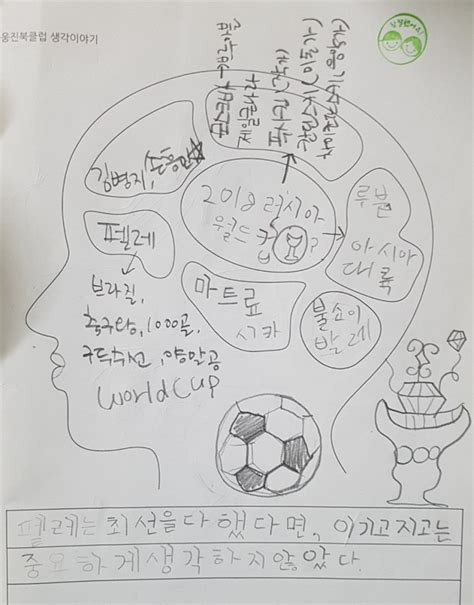 웅진북클럽 생각이야기
참 잘했어요!
김병지, 손흥민
펠레
브라질,
축구왕, 1000골,
구두수선, 양말공
World Cup
2018 러시아
월드컵
?
루블
아시아
대륙
마트료
시카
볼쇼이
발레
제일큰나라
펠레는 최선을 다했다면, 이기고 지고는
중요하게 생각하지 않았다.